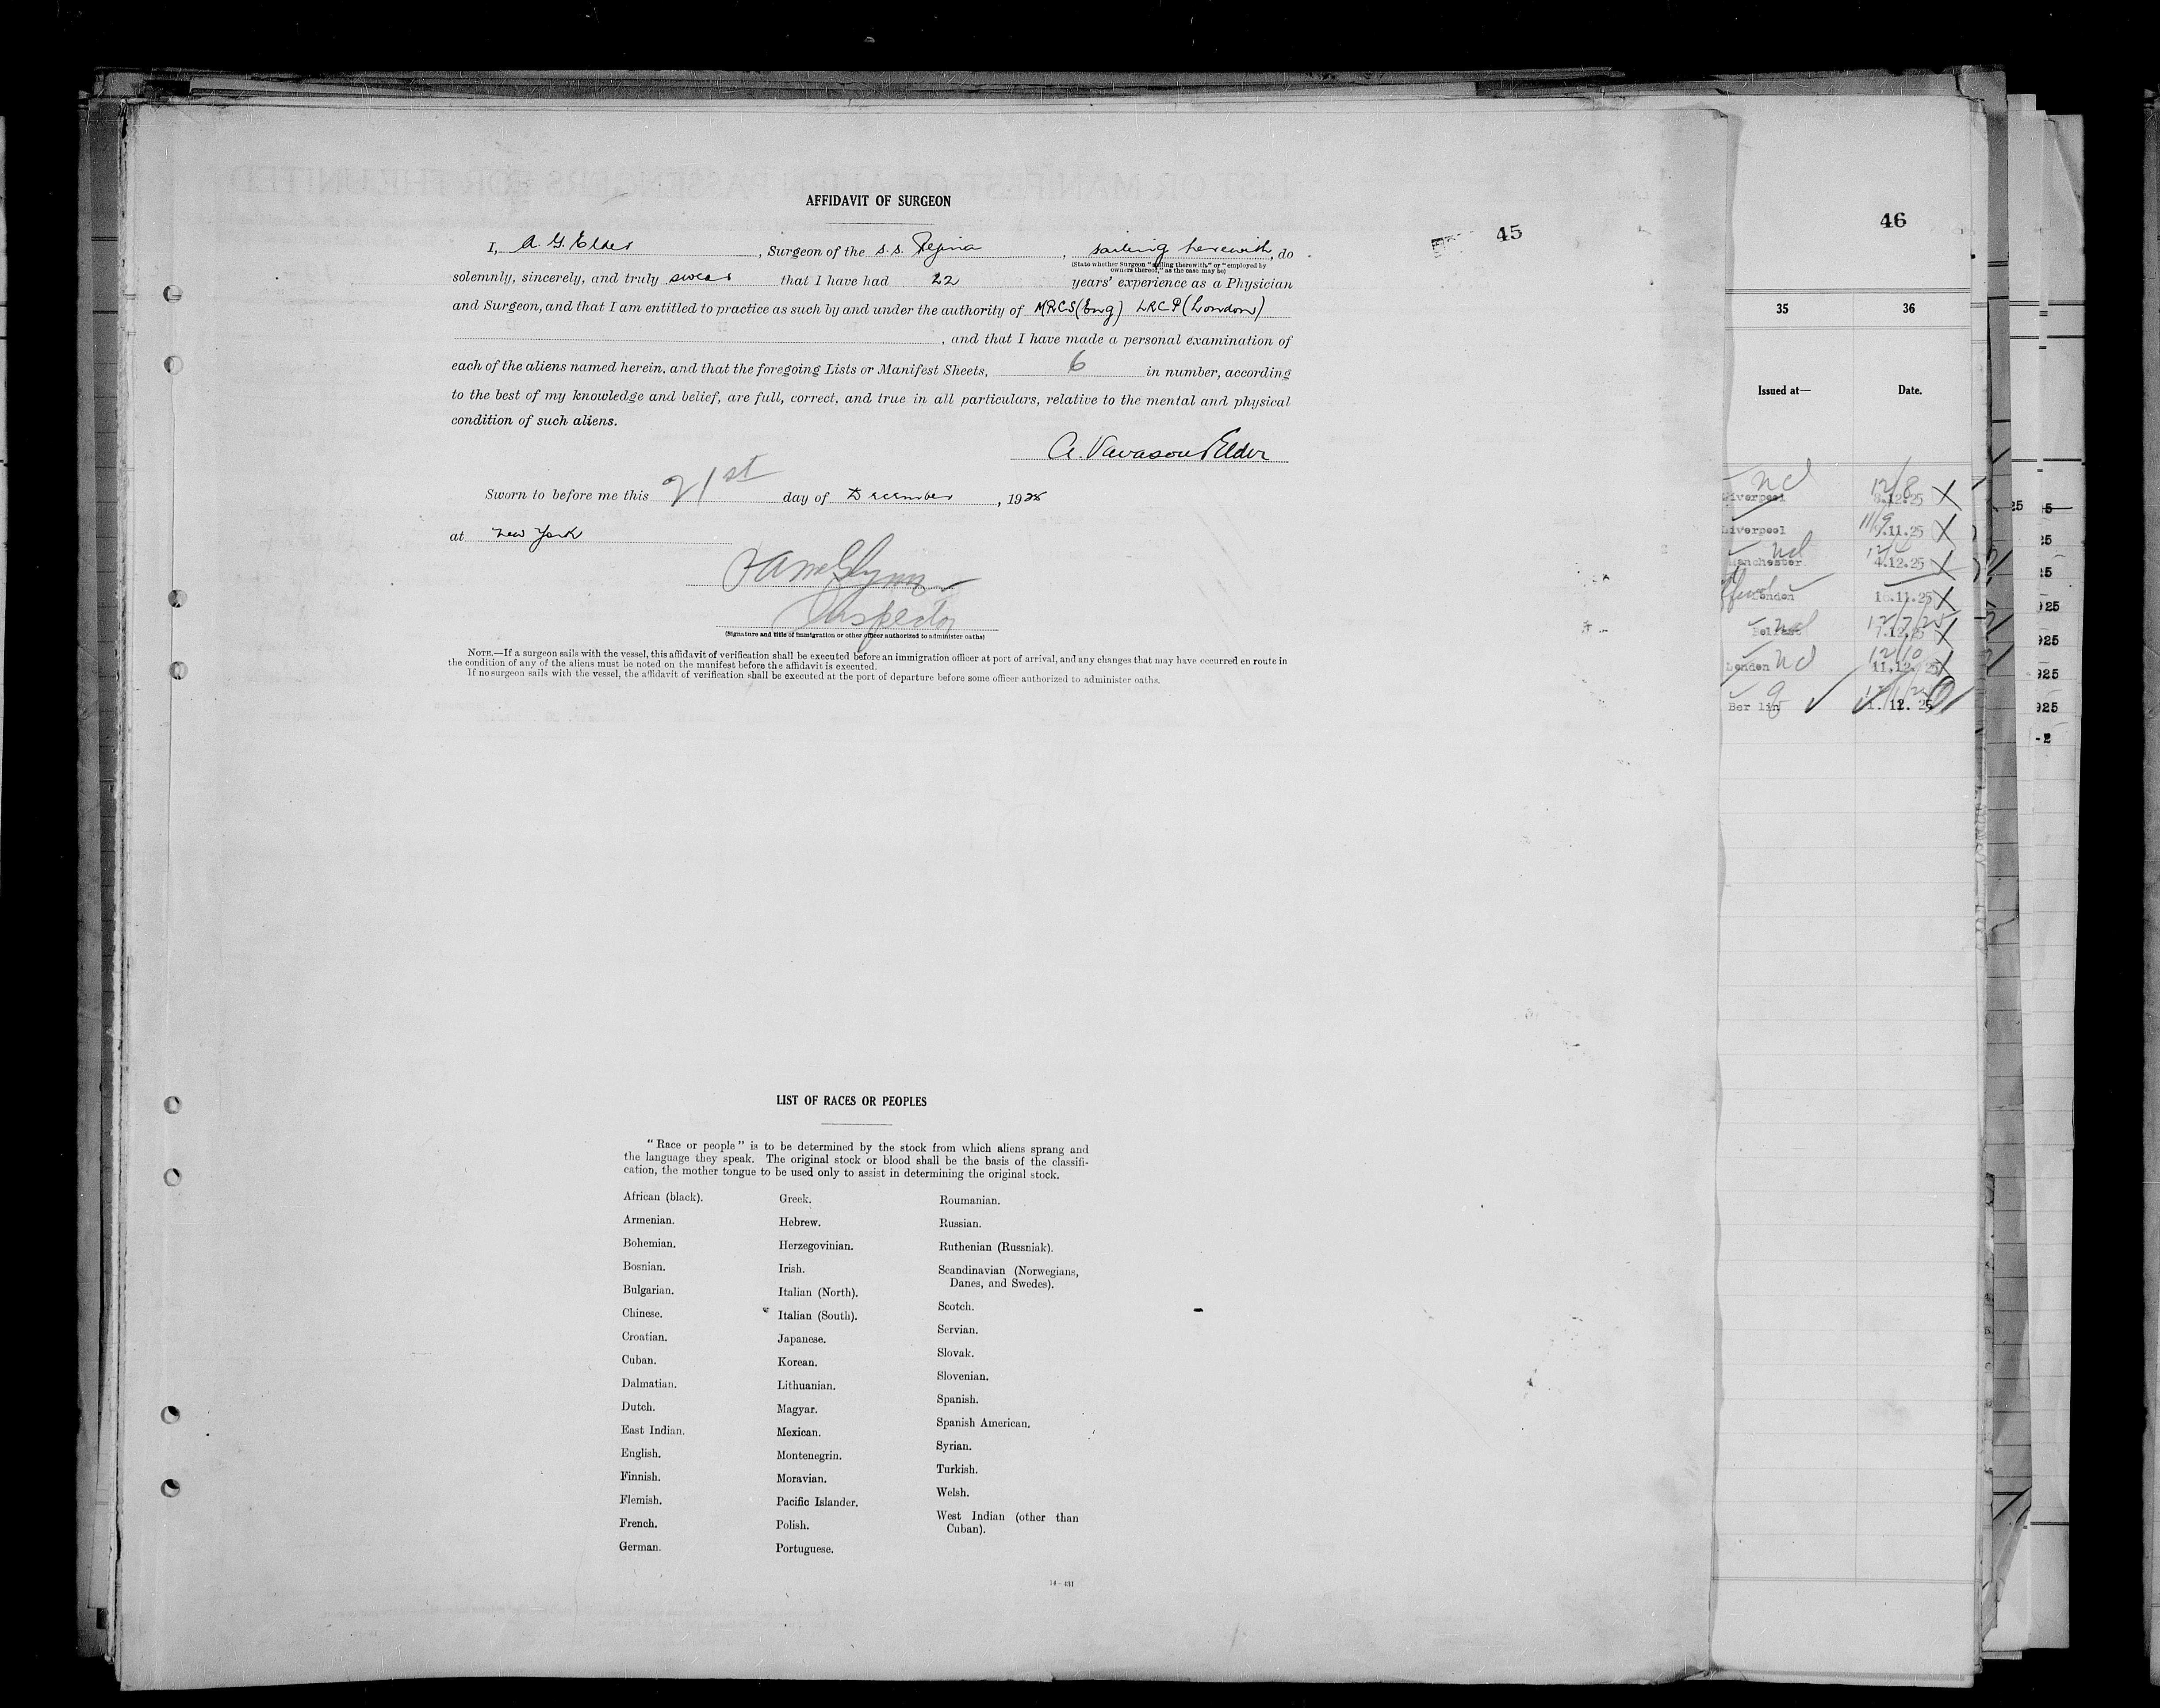 AFFIDAVIT OF SURGEON
45
I, A. G. Elder, Surgeon of the s.s. Regina, sailing herewith, do
(State whether Surgeon "sailing therewith" or "employed by
owners thereof," as the case may be)
solemnly, sincerely, and truly swear that I have had 22 years' experience as a Physician
and Surgeon, and that I am entitled to practice as such by and under the authority of MRCS (Eng) LRCP (London)
, and that I have made a personal examination of
each of the aliens named herein, and that the foregoing Lists or Manifest Sheets, 6 in number, according
to the best of my knowledge and belief, are full, correct, and true in all particulars, relative to the mental and physical
condition of such aliens.
A. Vavasour Elder
Sworn to before me this 21st day of December, 1925
at New York
Inspector
(Signature and title of immigration or other officer authorized to administer oaths)
NOTE.—If a surgeon sails with the vessel, this affidavit of verification shall be executed before an immigration officer at port of arrival, and any changes that may have occurred en route in
the condition of any of the aliens must be noted on the manifest before the affidavit is executed.
If no surgeon sails with the vessel, the affidavit of verification shall be executed at the port of departure before some officer authorized to administer oaths.
LIST OF RACES OR PEOPLES
"Race or people" is to be determined by the stock from which aliens sprang and
the language they speak. The original stock or blood shall be the basis of the classifi-
cation, the mother tongue to be used only to assist in determining the original stock.
African (black).
Armenian.
Bohemian.
Bosnian.
Bulgarian.
Chinese.
Croatian.
Cuban.
Dalmatian.
Dutch.
East Indian.
English.
Finnish.
Flemish.
French.
German.
Greek.
Hebrew.
Herzegovinian.
Irish.
Italian (North).
Italian (South).
Japanese.
Korean.
Lithuanian.
Magyar.
Mexican.
Montenegrin.
Moravian.
Pacific Islander.
Polish.
Portuguese.
Roumanian.
Russian.
Ruthenian (Russniak).
Scandinavian (Norwegians,
Danes, and Swedes).
Scotch.
Servian.
Slovak.
Slovenian.
Spanish.
Spanish American.
Syrian.
Turkish.
Welsh.
West Indian (other than
Cuban).
14—431
46
35 36
Issued at— Date.
nd 12/8
Liverpool 8.12.25 X
11/9
Liverpool 9.11.25 X
nd
Manchester 4.12.25 X
London 16.11.25 X
Belfast 7.12.25 X
12/10
London nd 11.12.25 X
Berlin 1.12.25
25
25
25
925
925
925
925